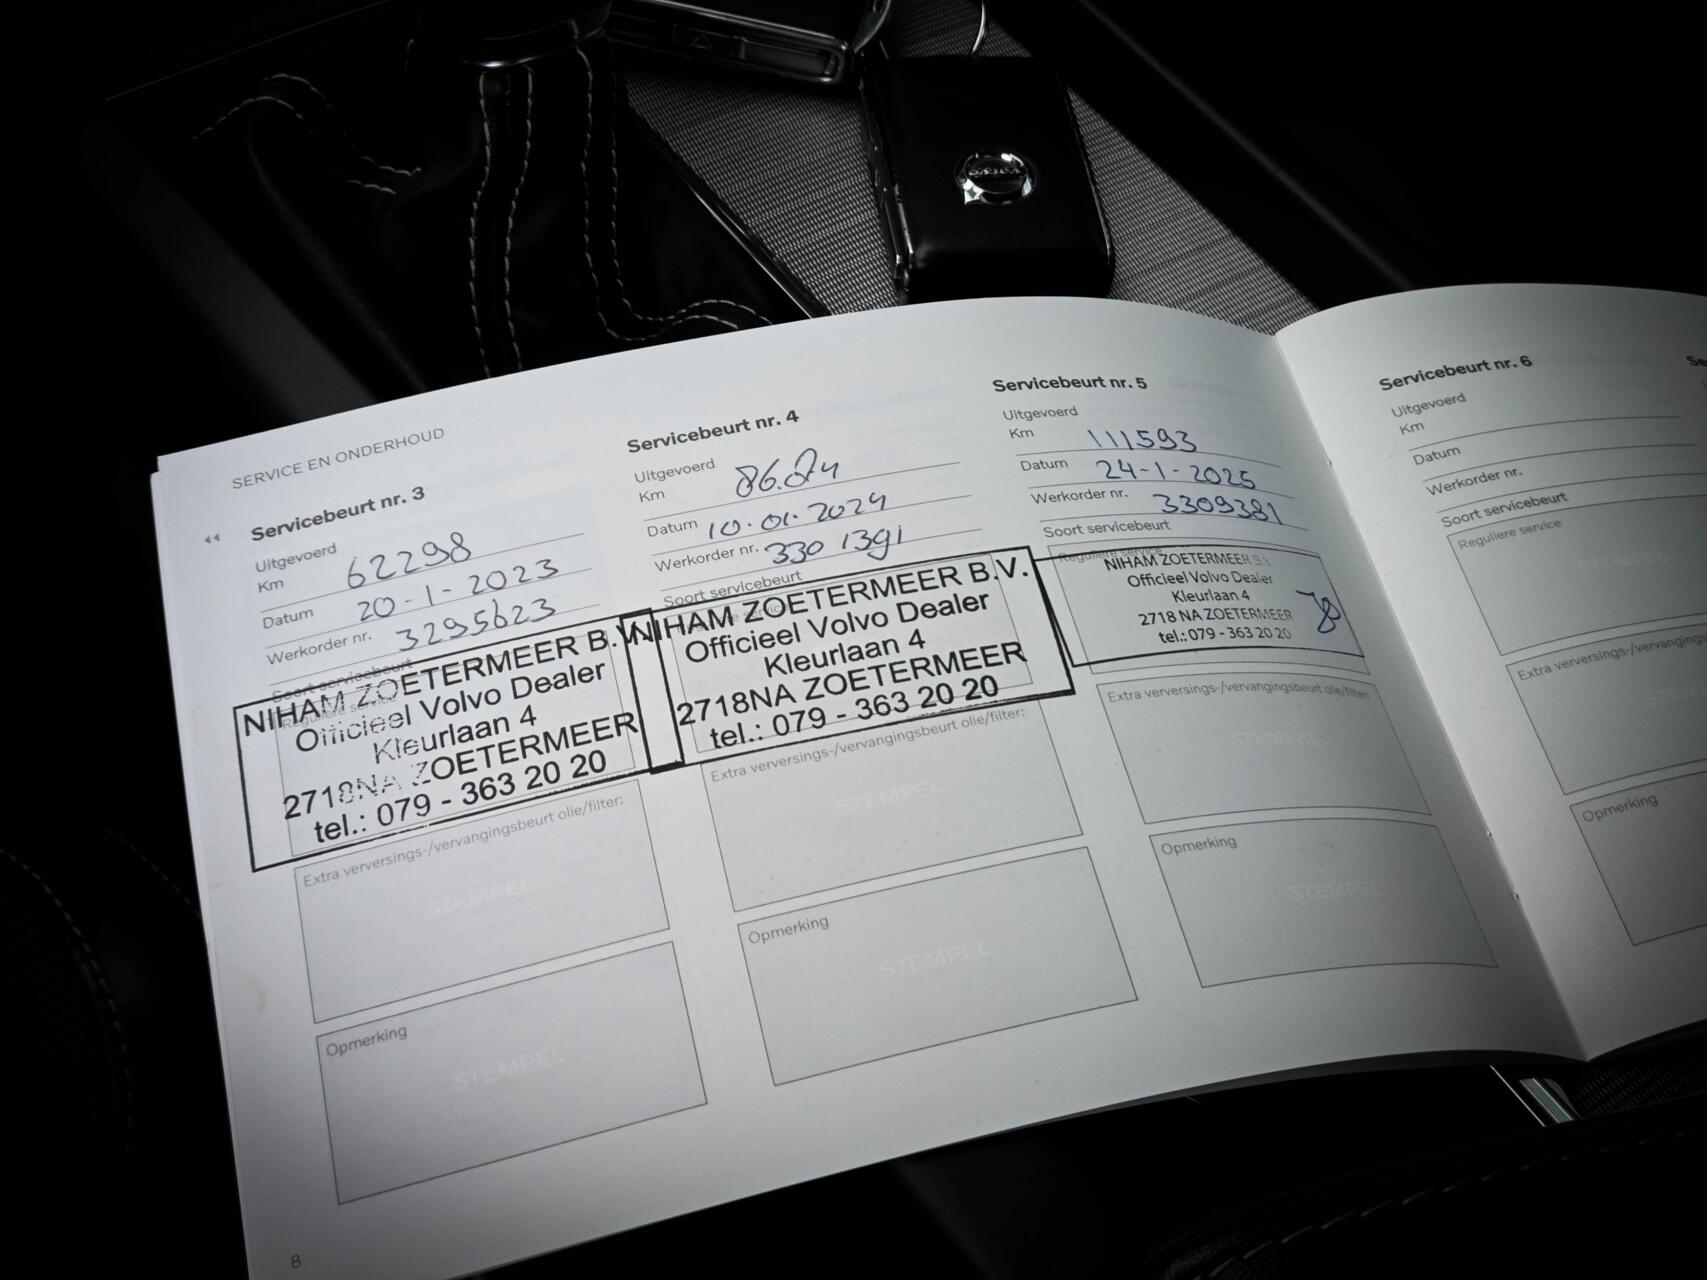 SERVICE EN ONDERHOUD
Servicebeurt nr. 3
Uitgevoerd
Km 62298
Datum 20-1-2023
Werkorder nr. 3295623
Soort servicebeurt
Reguliere service
NIHAM ZOETERMEER B.V.
Officieel Volvo Dealer
Kleurlaan 4
2718NA ZOETERMEER
tel.: 079 - 363 20 20
Extra verversings-/vervangingsbeurt olie/filter:
STEMPEL
Opmerking
STEMPEL
8
Servicebeurt nr. 4
Uitgevoerd
Km
Datum 10.01.2024
Werkorder nr.
Soort servicebeurt
NIHAM ZOETERMEER B.V.
Officieel Volvo Dealer
Kleurlaan 4
2718NA ZOETERMEER
tel.: 079 - 363 20 20
Extra verversings-/vervangingsbeurt olie/filter:
STEMPEL
Opmerking
STEMPEL
Servicebeurt nr. 5
Uitgevoerd
Km 111593
Datum 24-1-2025
Werkorder nr. 3309381
Soort servicebeurt
Reguliere service
NIHAM ZOETERMEER B.V.
Officieel Volvo Dealer
Kleurlaan 4
2718 NA ZOETERMEER
tel.: 079 - 363 20 20
Extra verversings-/vervangingsbeurt olie/filter:
STEMPEL
Opmerking
STEMPEL
Servicebeurt nr. 6
Uitgevoerd
Km
Datum
Werkorder nr.
Soort servicebeurt
Reguliere service
STEMPEL
Extra verversings-/vervangings
Opmerking